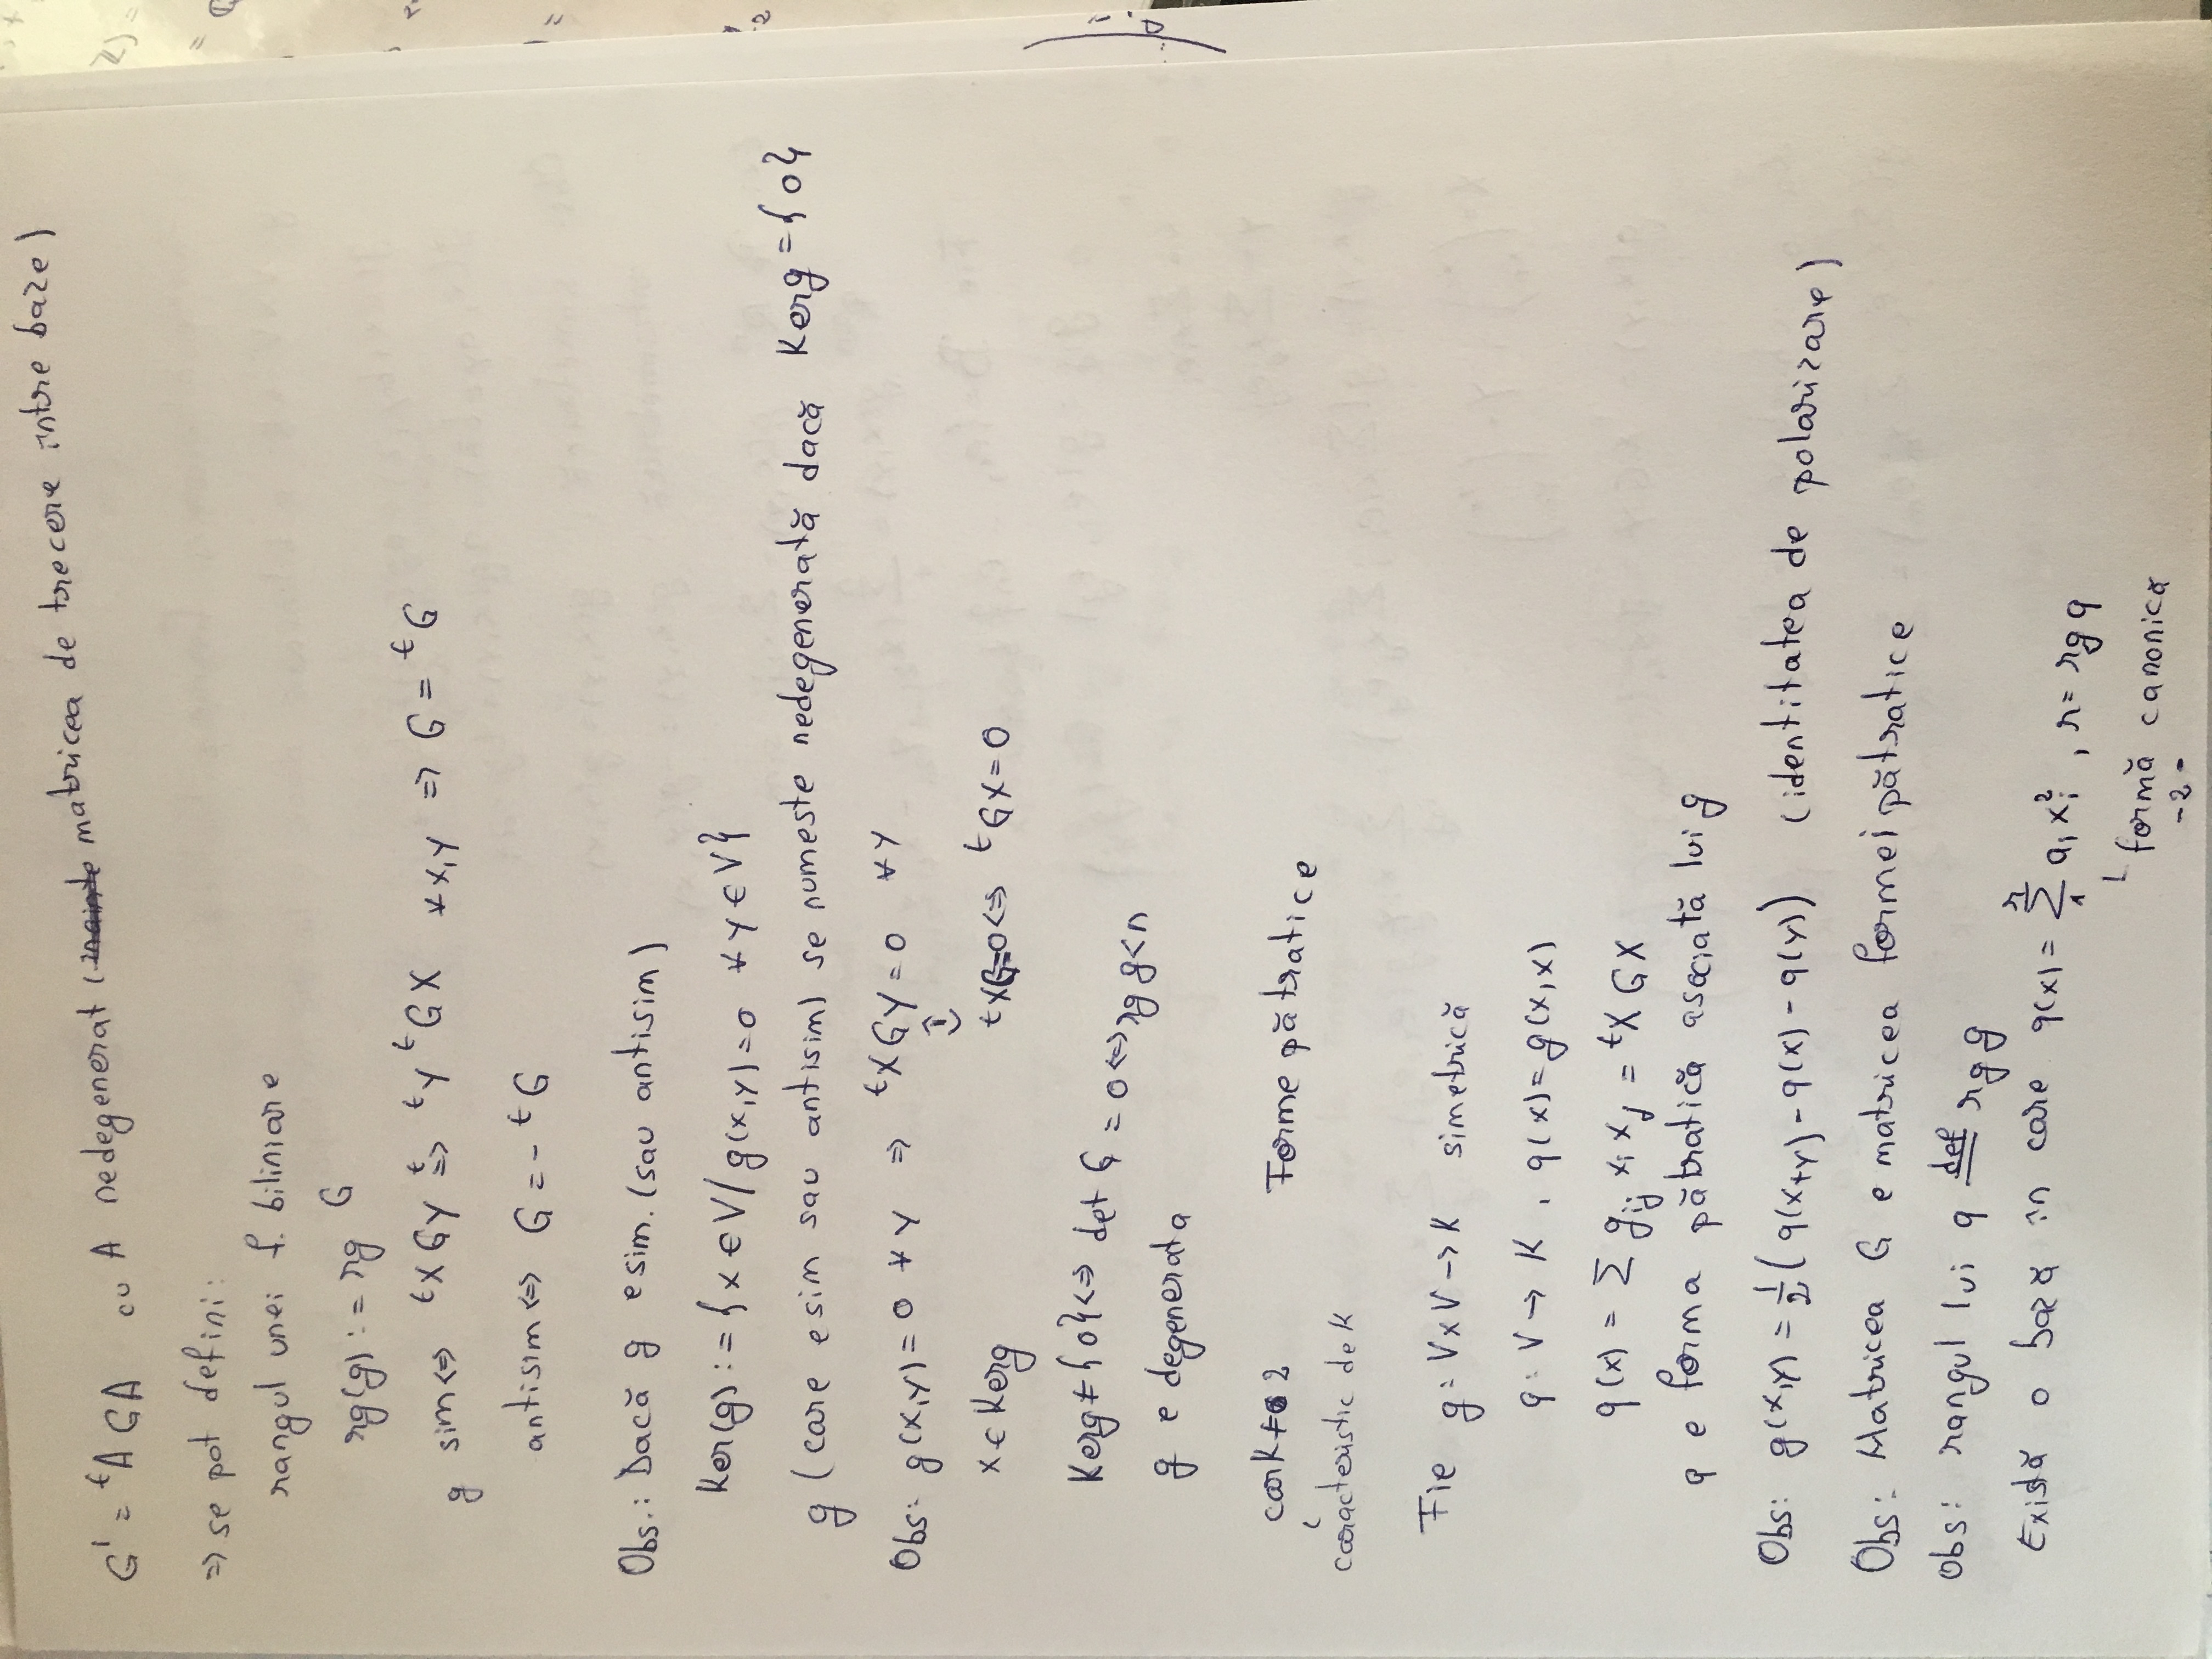 G' = ᵗA G A cu A nedegenerat (matricea de trecere între baze)
⇒ se pot defini:
rangul unei f. biliniare
rg(g) := rg G
g sim ⇔ ᵗX G Y =ᵗ> ᵗY ᵗG X ∀ x,y ⇒ G = ᵗG
antisim ⇔ G = - ᵗG
Obs.: Dacă g e sim. (sau antisim)
Ker(g) := { x ∈ V / g(x,y) = 0 ∀ y ∈ V }
g (care e sim sau antisim) se numeste nedegenerată dacă Ker g = {0}
Obs: g(x,y) = 0 ∀ y ⇒ ᵗX G Y = 0 ∀ Y
⇕
x ∈ Ker g ᵗX G = 0 ⇔ ᵗG X = 0
Ker g ≠ {0} ⇔ det G = 0 ⇔ rg g < n
g e degenerata
car K ≠ 2 Forme pătratice
caracteristic de K
Fie g: V x V → K simetrică
q: V → K , q(x) = g(x,x)
q(x) = Σ gij xi xj = ᵗX G X
q e forma pătratică asociată lui g
Obs: g(x,y) = 1/2 ( q(x+y) - q(x) - q(y) ) (identitatea de polarizare)
Obs: Matricea G e matricea formei pătratice
Obs: rangul lui q def= rg g
Există o bază în care q(x) = Σ₁ʳ ai xi² , r = rg q
formă canonică
- 2 -